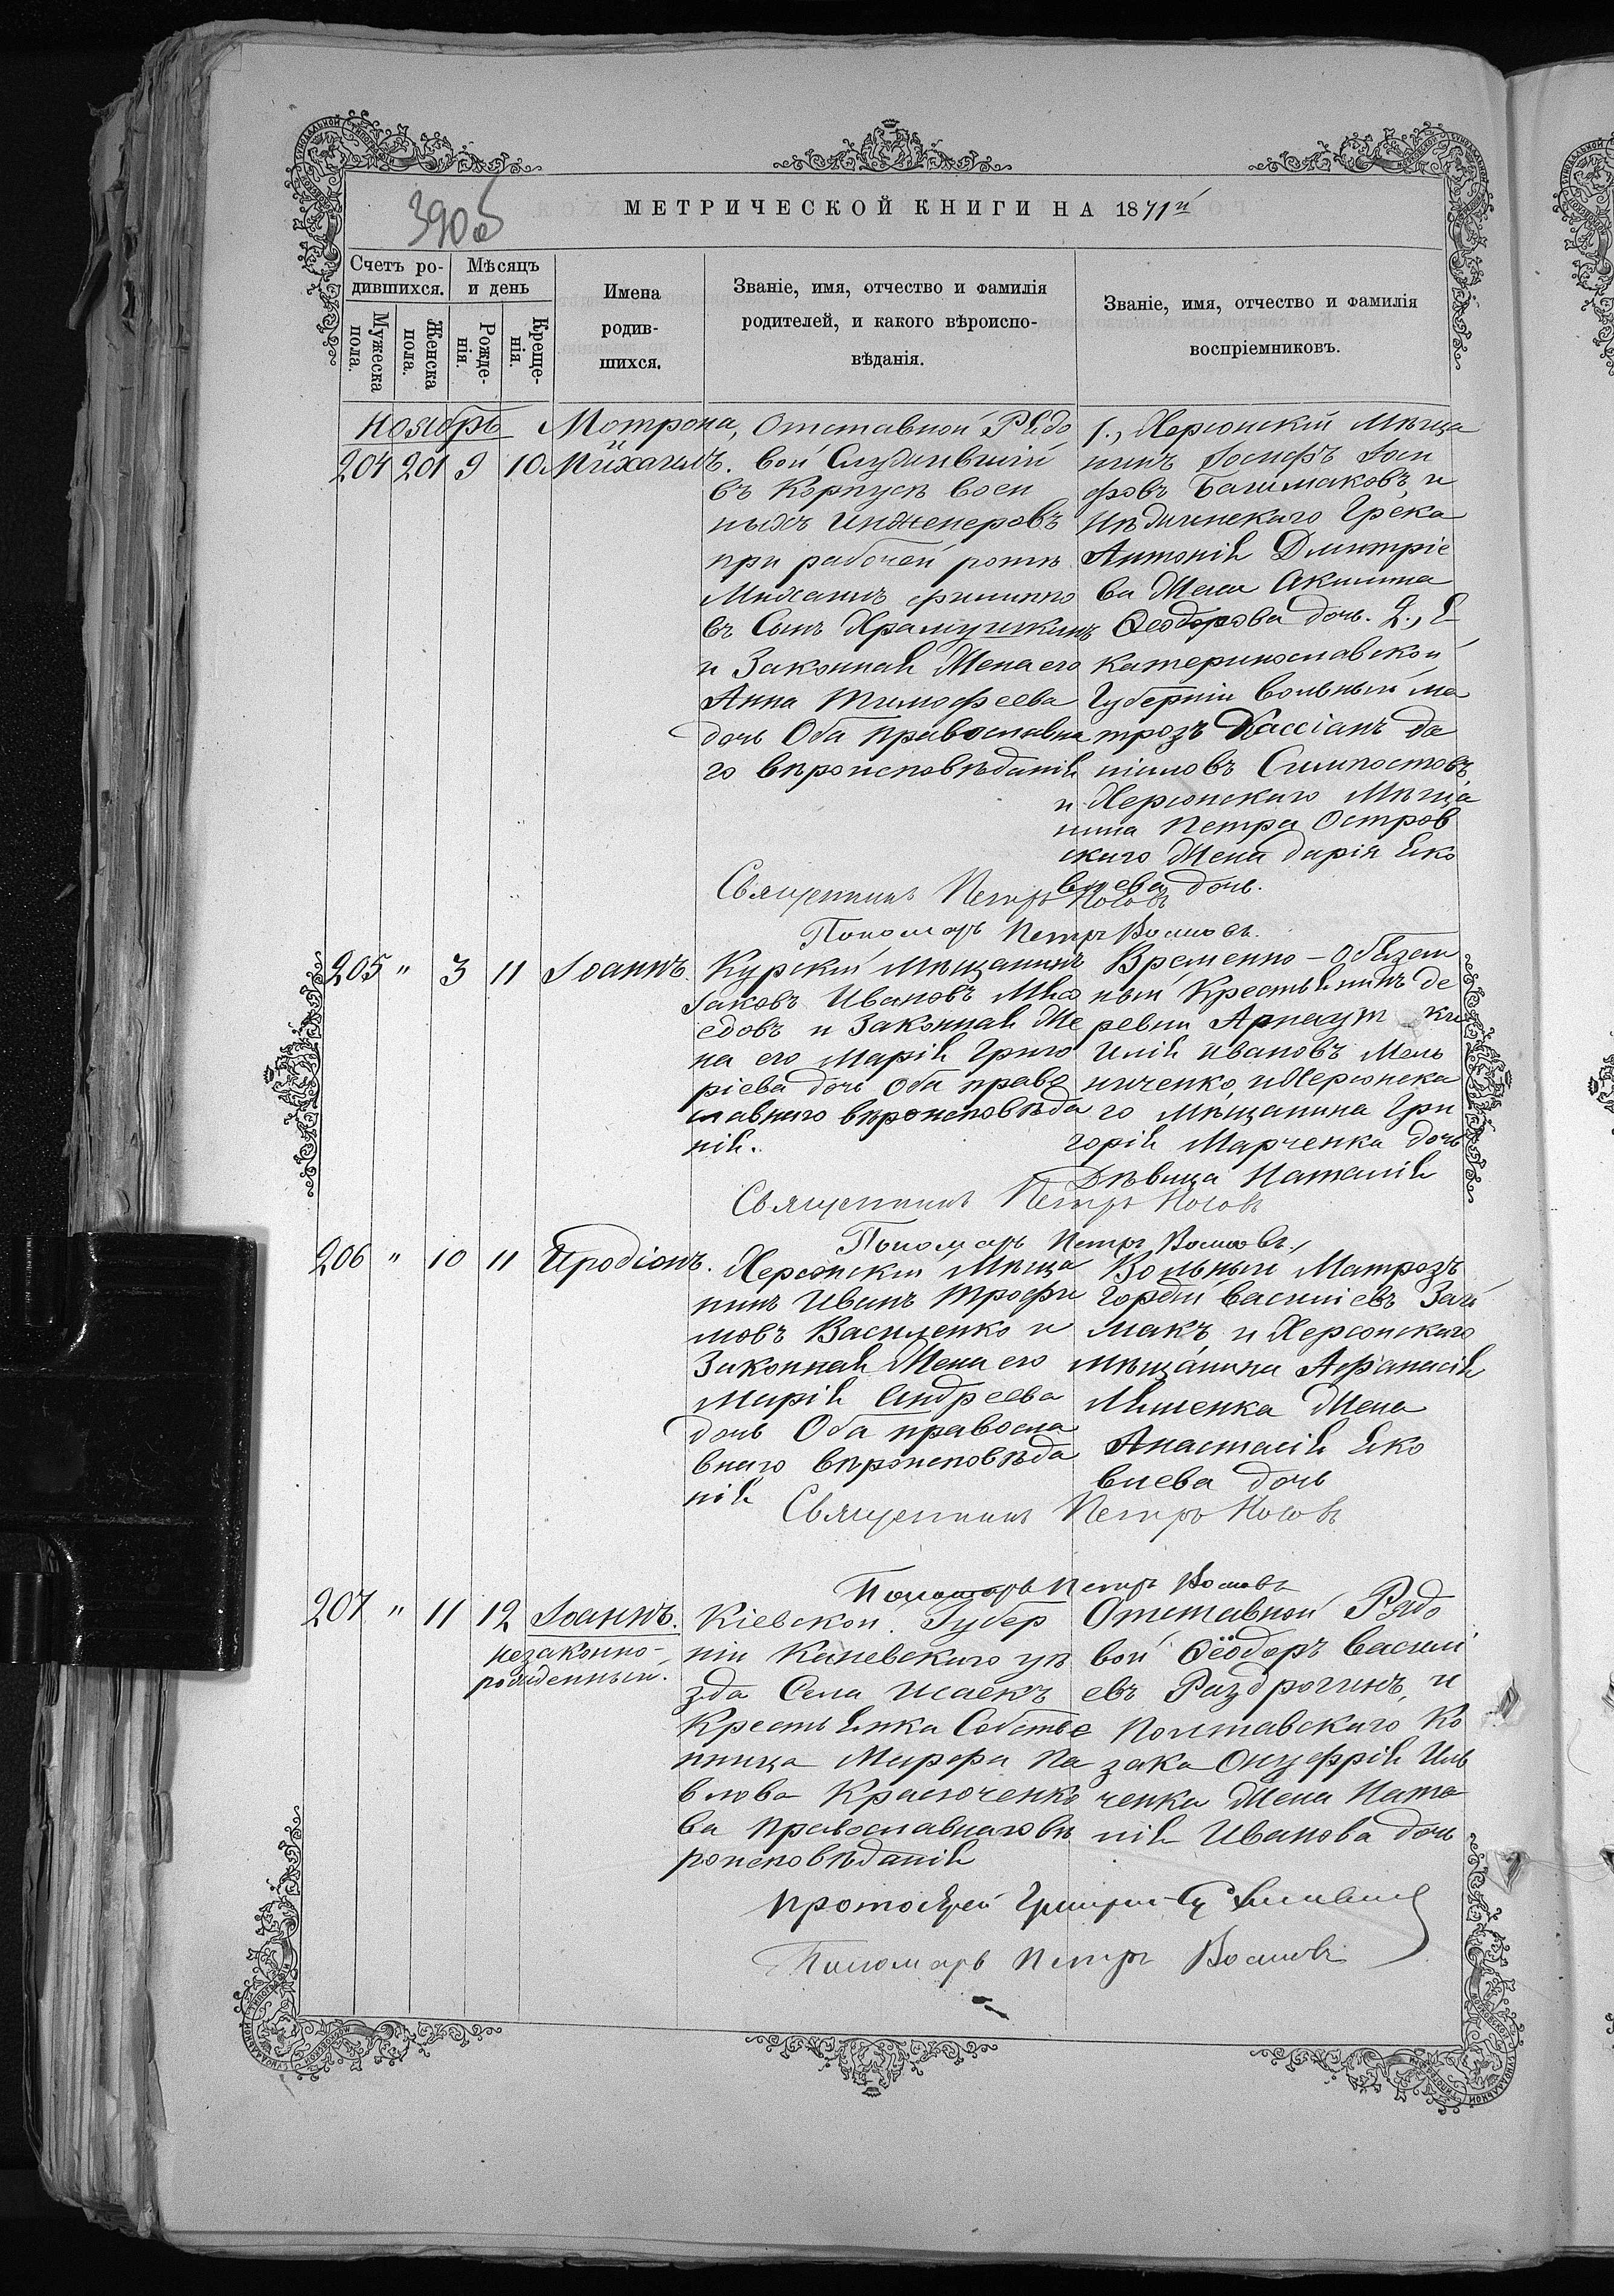 390б
МЕТРИЧЕСКОЙ КНИГИ НА 1871й
Счетъ ро-
дившихся.
Мужеска
пола.
Женска
пола.
Мѣсяцъ
и день
Рожде-
нія.
Креще-
нія.
Имена
родив-
шихся.
Званіе, имя, отчество и фамилія
родителей, и какого вѣроиспо-
вѣданія.
Званіе, имя, отчество и фамилія
воспріемниковъ.
Ноябрь
204 201 9 10
Мотрона,
и
Михаилъ.
Отставной Рядо
вой Служившій
въ Корпусѣ воен
ныхъ Инженеровъ
при рабочей ротѣ
Михаилъ филиппо
въ Сынъ Храмушкинъ
и Законная Жена его
Анна Тимофеева
дочь Оба православна
го вѣроисповѣданія
1., Херсонскій Мѣща
нинъ Іосифъ Іоси
фовъ Башмаковъ, и
Нѣжинскаго Грека
Антонія Дмитріе
ва Жена Акилина
Ѳеодорова дочь. 2., Е
катеринославской
Губерніи вольный ма
трозъ Кассіанъ Да
ніиловъ
и Херсонскаго Мѣща
нина Петра Остров
скаго Жена Дарія Яко
влева дочь.
Священникъ Петръ Носовъ
Пономарь Петръ
205 " 3 11 Іоаннъ.
Курскій Мѣщанинъ
Іаковъ Ивановъ Мясо
едовъ и Законная Же
на его Марія Григо
ріева дочь Оба право
славнаго вѣроисповѣда
нія.
Временно-обязан
ный Крестьянинъ де
ревни Арнаут ки
Илія Ивановъ Мель
ниченко, и Херсонска
го Мѣщанина Гри
горія Марченка дочь
Дѣвица Наталія
Священникъ Петръ Носовъ
Пономарь Петръ
206 " 10 11 Иродіонъ.
Херсонскій Мѣща
нинъ Иванъ Трофи
мовъ Василенко и
Законная Жена его
Марія Андреева
дочь Оба правосла
внаго вѣроисповѣда
нія
Вольный Матрозъ
Гордій Василіевъ Зай
макъ, и Херсонскаго
Мѣщанина Афанасія
Ляшенка Жена
Анастасія Яко
влева дочь
Священникъ Петръ Носовъ
Пономарь Петръ
207 " 11 12 Іоаннъ.
незаконно-
рожденный.
Кіевской Губер
ніи Каневскаго уѣ
зда Села Исаекъ
Крестьянка Собстве
нница Марфа Па
влова
ва православнаго вѣ
роисповѣданія
Отставной Рядо
вой Ѳеодоръ Васили
евъ Раздрогинъ, и
Полтавскаго Ко
зака Онуфрія Иль
ченка Жена Ната
лія Иванова дочь
Протоіерей Григорій
Пономарь Петръ